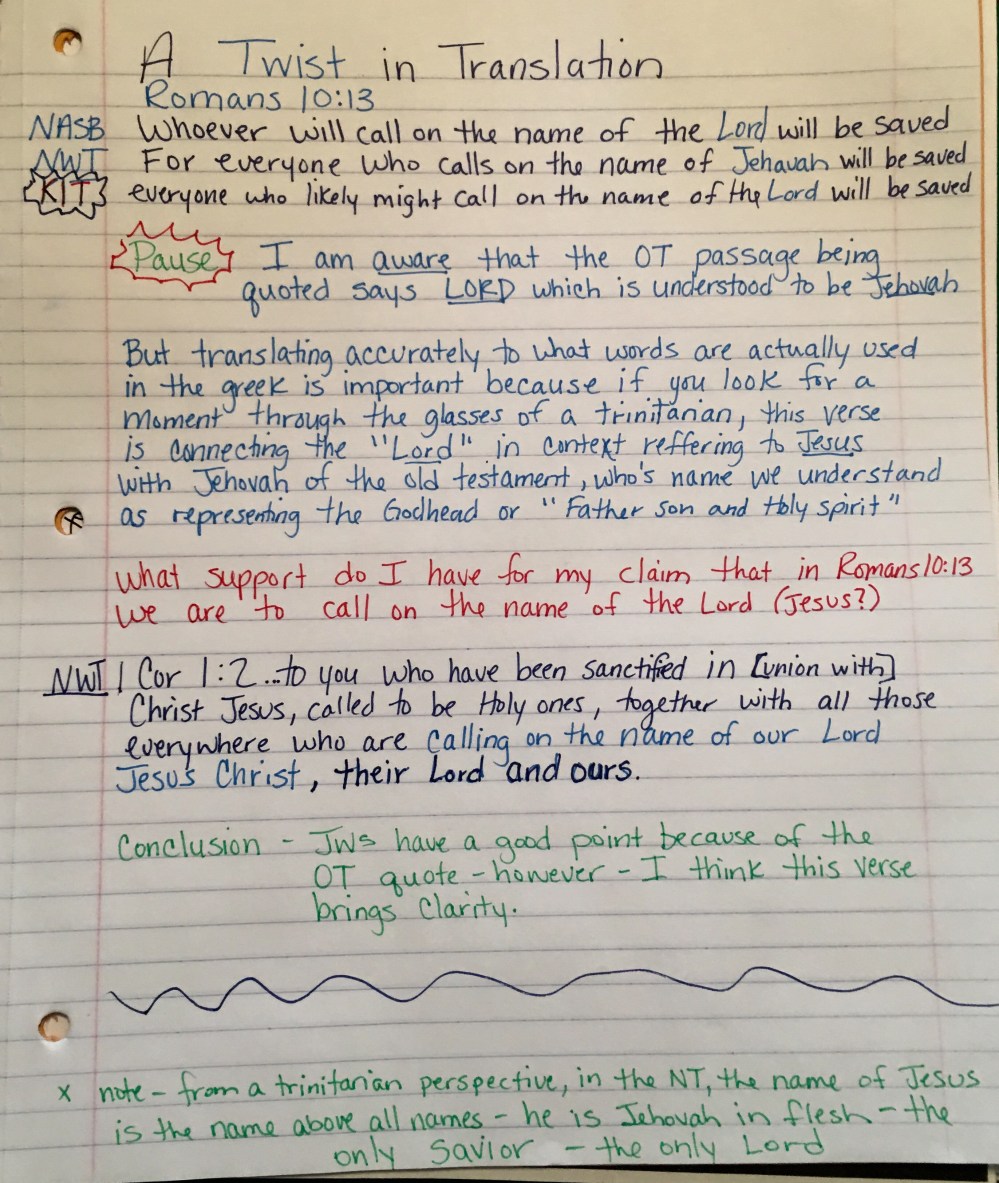 A Twist in Translation
Romans 10:13
NASB Whoever will call on the name of the Lord will be saved
NWT For everyone who calls on the name of Jehavah will be saved
KIT everyone who likely might call on the name of the Lord will be saved
Pause I am aware that the OT passage being
quoted says LORD which is understood to be Jehovah
But translating accurately to what words are actually used
in the greek is important because if you look for a
moment through the glasses of a trinitarian, this verse
is connecting the "Lord" in context reffering to Jesus
with Jehovah of the old testament, who's name we understand
x as representing the Godhead or "Father son and Holy spirit"
What support do I have for my claim that in Romans 10:13
we are to call on the name of the Lord (Jesus?)
NWT 1 Cor 1:2...to you who have been sanctified in [union with]
Christ Jesus, called to be Holy ones, together with all those
everywhere who are calling on the name of our Lord
Jesus Christ, their Lord and ours.
Conclusion - JWs have a good point because of the
OT quote - however - I think this verse
brings clarity.
x note - from a trinitarian perspective, in the NT, the name of Jesus
is the name above all names - he is Jehovah in flesh - the
only Savior - the only Lord